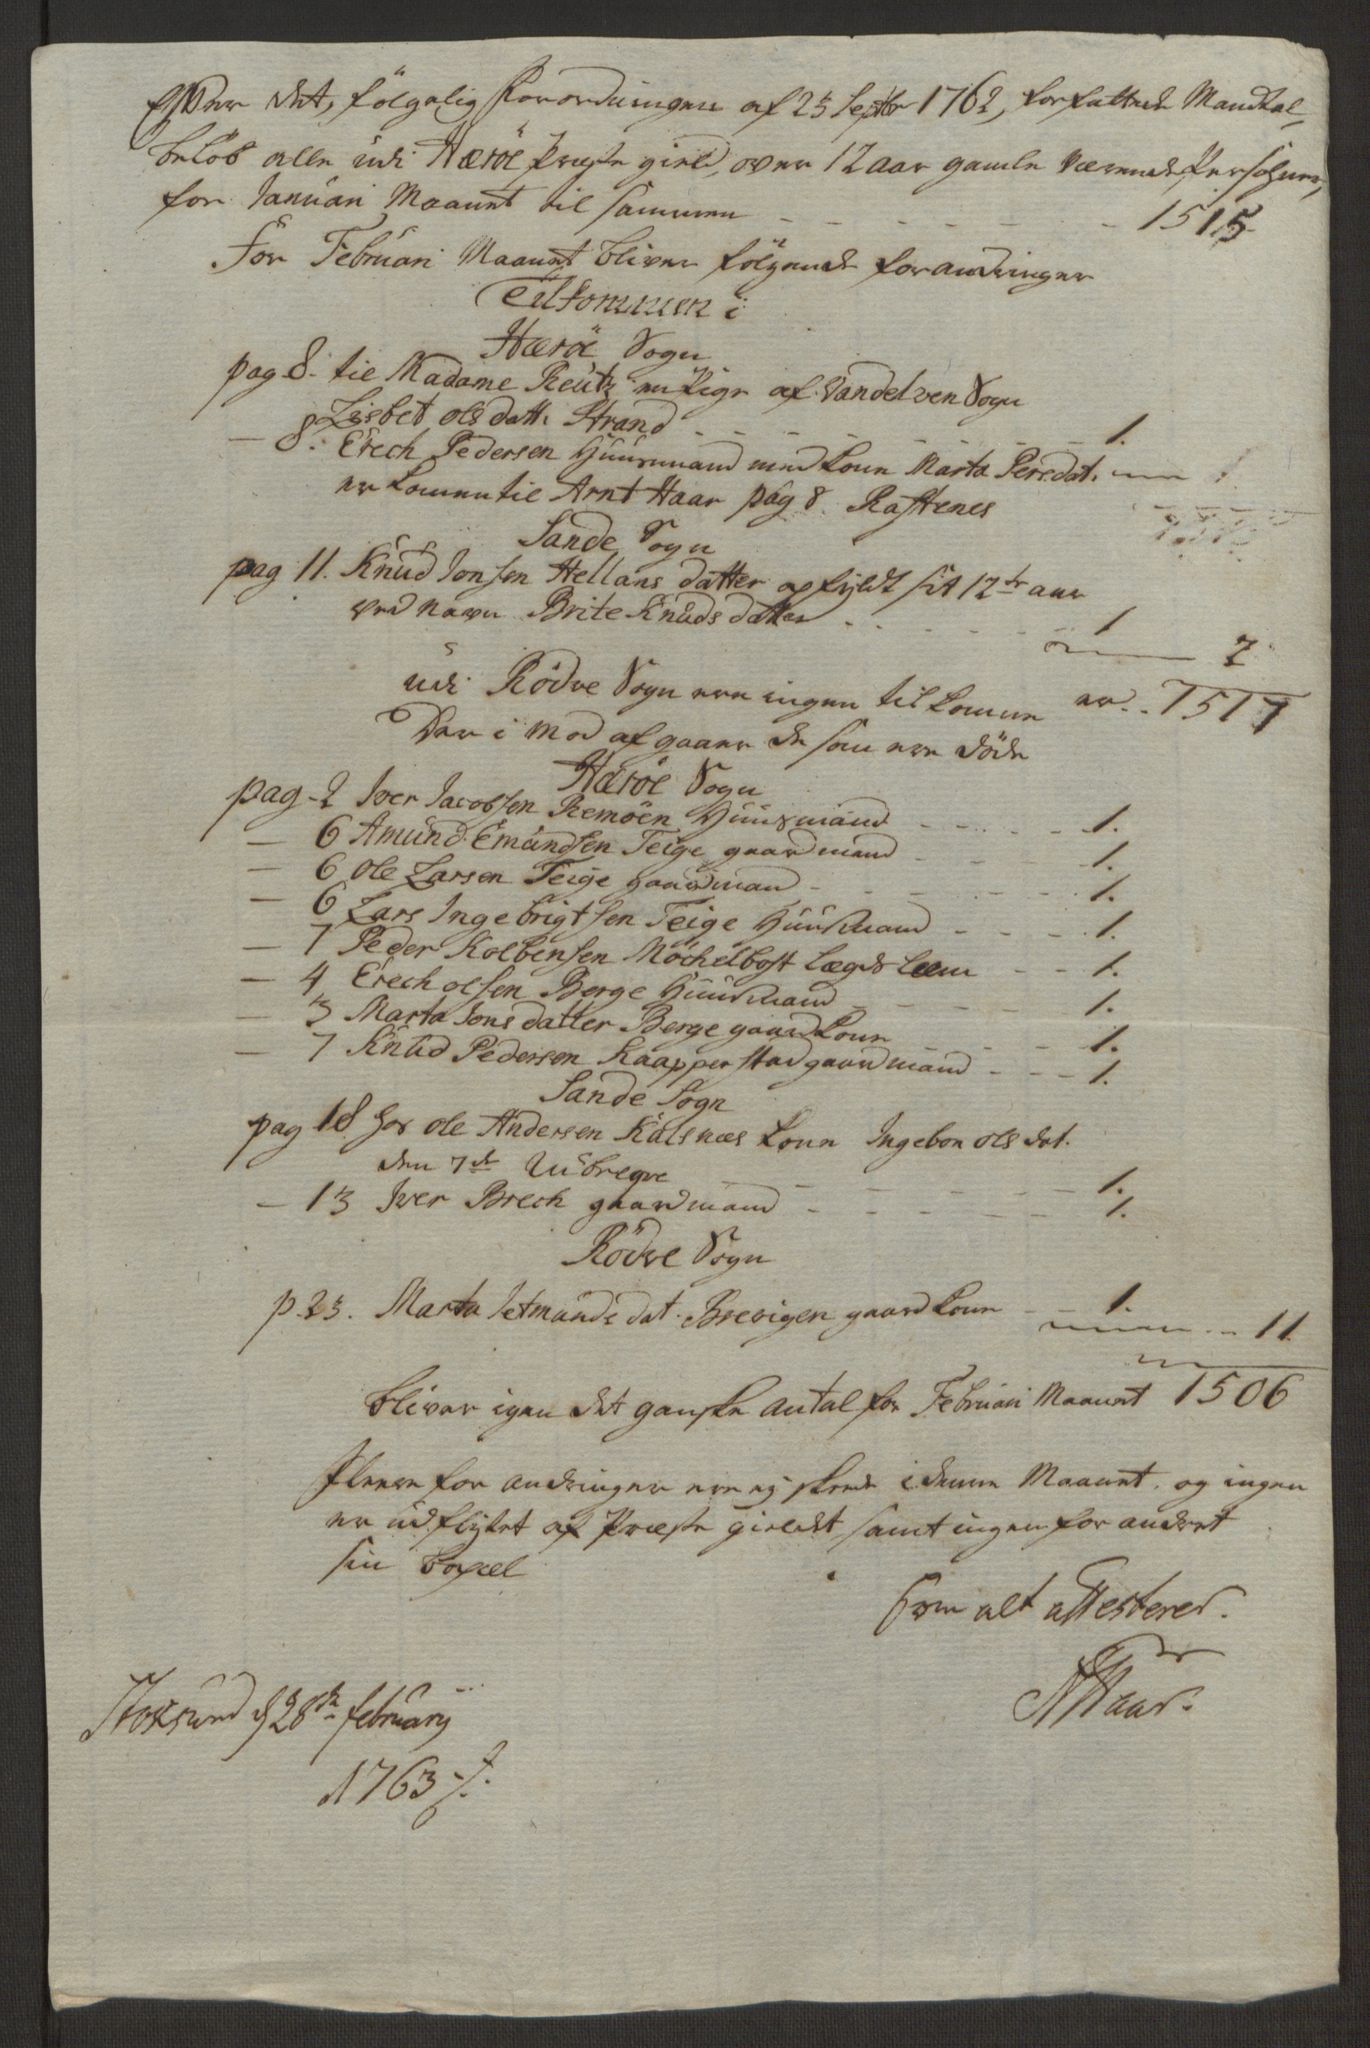 Efter det, fölgelig Forordningen af 23 Septbr 1762, forfattede Mandtal,
beløb alle udi Herröe Præste gield, over 12 aar gamle værende Persohner,
for Januari Maanet til sammen - - - - - - 1515
For Februari Maanet bliver fölgende forandringer
Tilkommen i
Herröe Sogn
pag 8. til Madame Reutz en Pige af Vandelven Sogn
Lisbet olsdatt. Strand - - - - - - 1.
— 8. Erech Pedersen Huusmand med kone Marta Persdat. 1.
er kommen til Arnt Haar pag 8 Raftenes
Sande Sogn
pag 11. Knud Jonsen Hellans datter opfyldt sit 12te aar
ved navn Brite Knudsdatter - - - - - 1
2
udi Rödve Sogn ere ingen til komme er.. 1517
Der i mod afgaaer de som ere döde
Herröe Sogn
pag - 2 Iver Jacobsen Remöen Huusmand - - - - 1.
— 6 Amund Emundsen Teige gaardmand - - - - 1.
— 6 Ole Larsen Teige gaardmand - - - - - 1.
— 6 Lars Ingebrigtsen Teige Huusmand - - - - 1.
— 7 Peder Kolbensen Möchelbost Lægdslem - - 1.
— 4 Erech olsen Berge Huusmand - - - - - 1.
— 3 Marta Jonsdatter Berge gaardkone - - - - 1.
— 7 Knud Pedersen Kaapperstad gaardmand - - - 1.
Sande Sogn
pag 18 hos ole Andersen Kalsnæs kone Ingebor olsdat.
den 7de - - - - - 1.
— 13 Iver Brech gaardmand - - - - - 1.
Rödve Sogn
p. 23. Marta Jetmundsdat. Brevigen gaardkone - - 1.
- - 11
bliver igen det ganske antal for Februari Maanet 1506
Flere for andringer ere ej skeede i denne Maanet. og ingen
er udflyttet af Præste gieldet, samt ingen forandret
sin boepæl
Som alt attesterer.
AHaar.
Stoksund d 28de februarij
1763 ./.